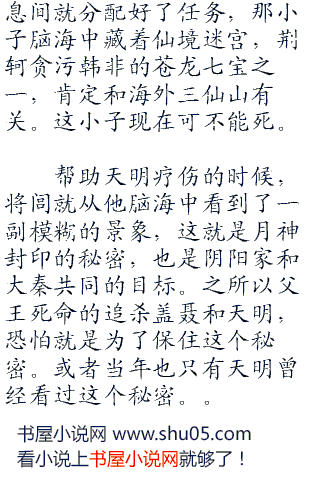 息间就分配好了任务，那小
子脑海中藏着仙境迷宫，荆
轲贪污韩非的苍龙七宝之
一，肯定和海外三仙山有
关。这小子现在可不能死。
帮助天明疗伤的时候，
将闾就从他脑海中看到了一
副模糊的景象，这就是月神
封印的秘密，也是阴阳家和
大秦共同的目标。之所以父
王死命的追杀盖聂和天明，
恐怕就是为了保住这个秘
密。或者当年也只有天明曾
经看过这个秘密。。
书屋小说网 www.shu05.com
看小说上书屋小说网就够了！